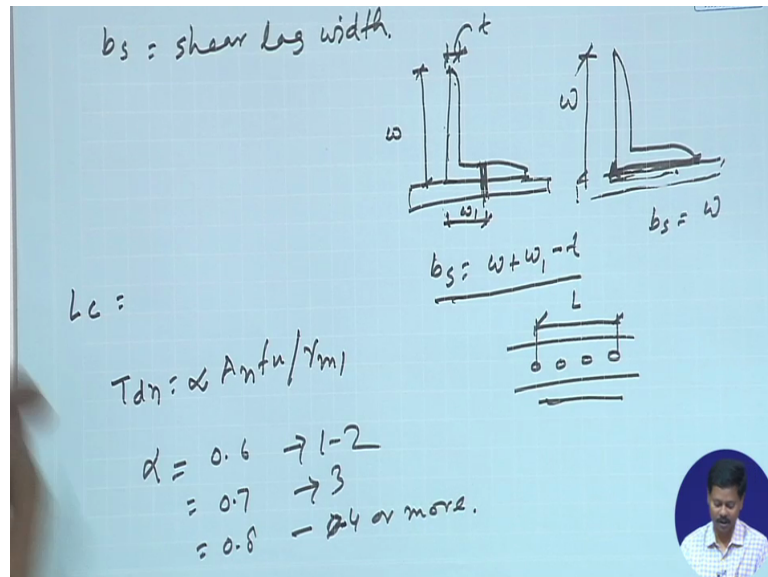 bs = shear lag width.
t
w
w1
bs = w + w1 - t
w
bs = w
Lc =
L
Tdn = α An fu / γm1
α = 0.6 → 1-2
= 0.7 → 3
= 0.8 - 4 or more.